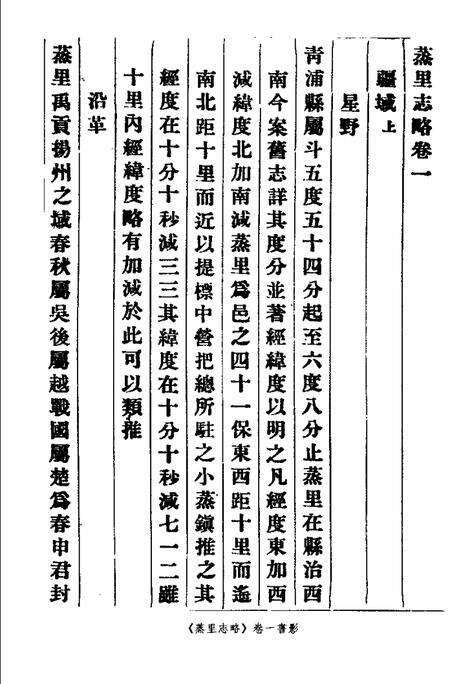 蒸里志略卷一
疆域上
星野
青浦縣屬斗五度五十四分起至六度八分止蒸里在縣治西
南今案舊志詳其度分並著經緯度以明之凡經度東加西
減緯度北加南減蒸里爲邑之四十一保東西距十里而遙
南北距十里而近以提標中營把總所駐之小蒸鎮推之其
經度在十分十秒減三三其緯度在十分十秒減七一二雖
十里內經緯度略有加減於此可以類推
沿革
蒸里禹貢揚州之域春秋屬吳後屬越戰國屬楚爲春申君封
《蒸里志略》卷一書影